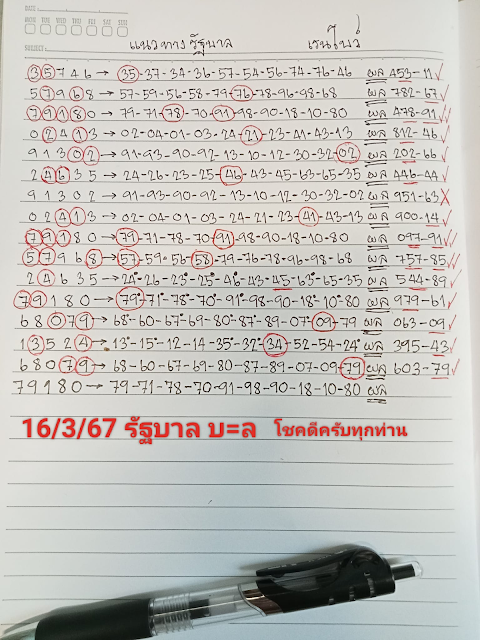 DATE :
MON TUE WED THU FRI SAT SUN
SUBJECT:
แนวทางรัฐบาล เรนโบว์
35746→ 35-37-34-36-57-54-56-74-76-46 ผล 453-11✓
57968→ 57-59-56-58-79-76-78-96-98-68 ผล 782-67✓
79180→ 79-71-78-70-91-98-90-18-10-80 ผล 478-91✓✓
02413→ 02-04-01-03-24-21-23-41-43-13 ผล 812-46✓
91302→ 91-93-90-92-13-10-12-30-32-02 ผล 202-66✓
24635→ 24-26-23-25-46-43-45-63-65-35 ผล 446-44✓
91302→ 91-93-90-92-13-10-12-30-32-02 ผล 951-63✗
02413→ 02-04-01-03-24-21-23-41-43-13 ผล 900-14✓
79180→ 79-71-78-70-91-98-90-18-10-80 ผล 097-91✓✓
57968→ 57-59-56-58-79-76-78-96-98-68 ผล 757-85✓✓
24635→ 24-26-23-25-46-43-45-63-65-35 ผล 544-89✓
79180→ 79-71-78-70-91-98-90-18-10-80 ผล 979-61✓
68079→ 68-60-67-69-80-87-89-07-09-79 ผล 063-09✓
13524→ 13-15-12-14-35-32-34-52-54-24 ผล 395-43✓
68079→ 68-60-67-69-80-87-89-07-09-79 ผล 603-79✓
79180→ 79-71-78-70-91-98-90-18-10-80 ผล
16/3/67 รัฐบาล บ=ล โชคดีครับทุกท่าน